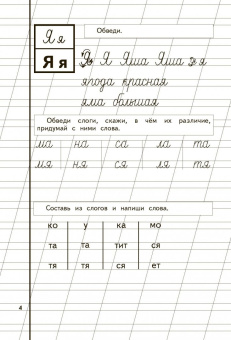 Я я
Обведи.
Я я
Я Я Яша Яша я я
ягода красная
яма большая
Обведи слоги, скажи, в чём их различие,
придумай с ними слова.
ма на са ла та
мя ня ся ля тя
Составь из слогов и напиши слова.
ко у ка мо
та та тит ся
тя тя ся ет
4